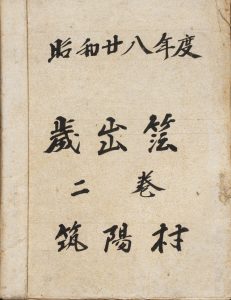 昭和廿八年度
歳出
二巻
筑陽村